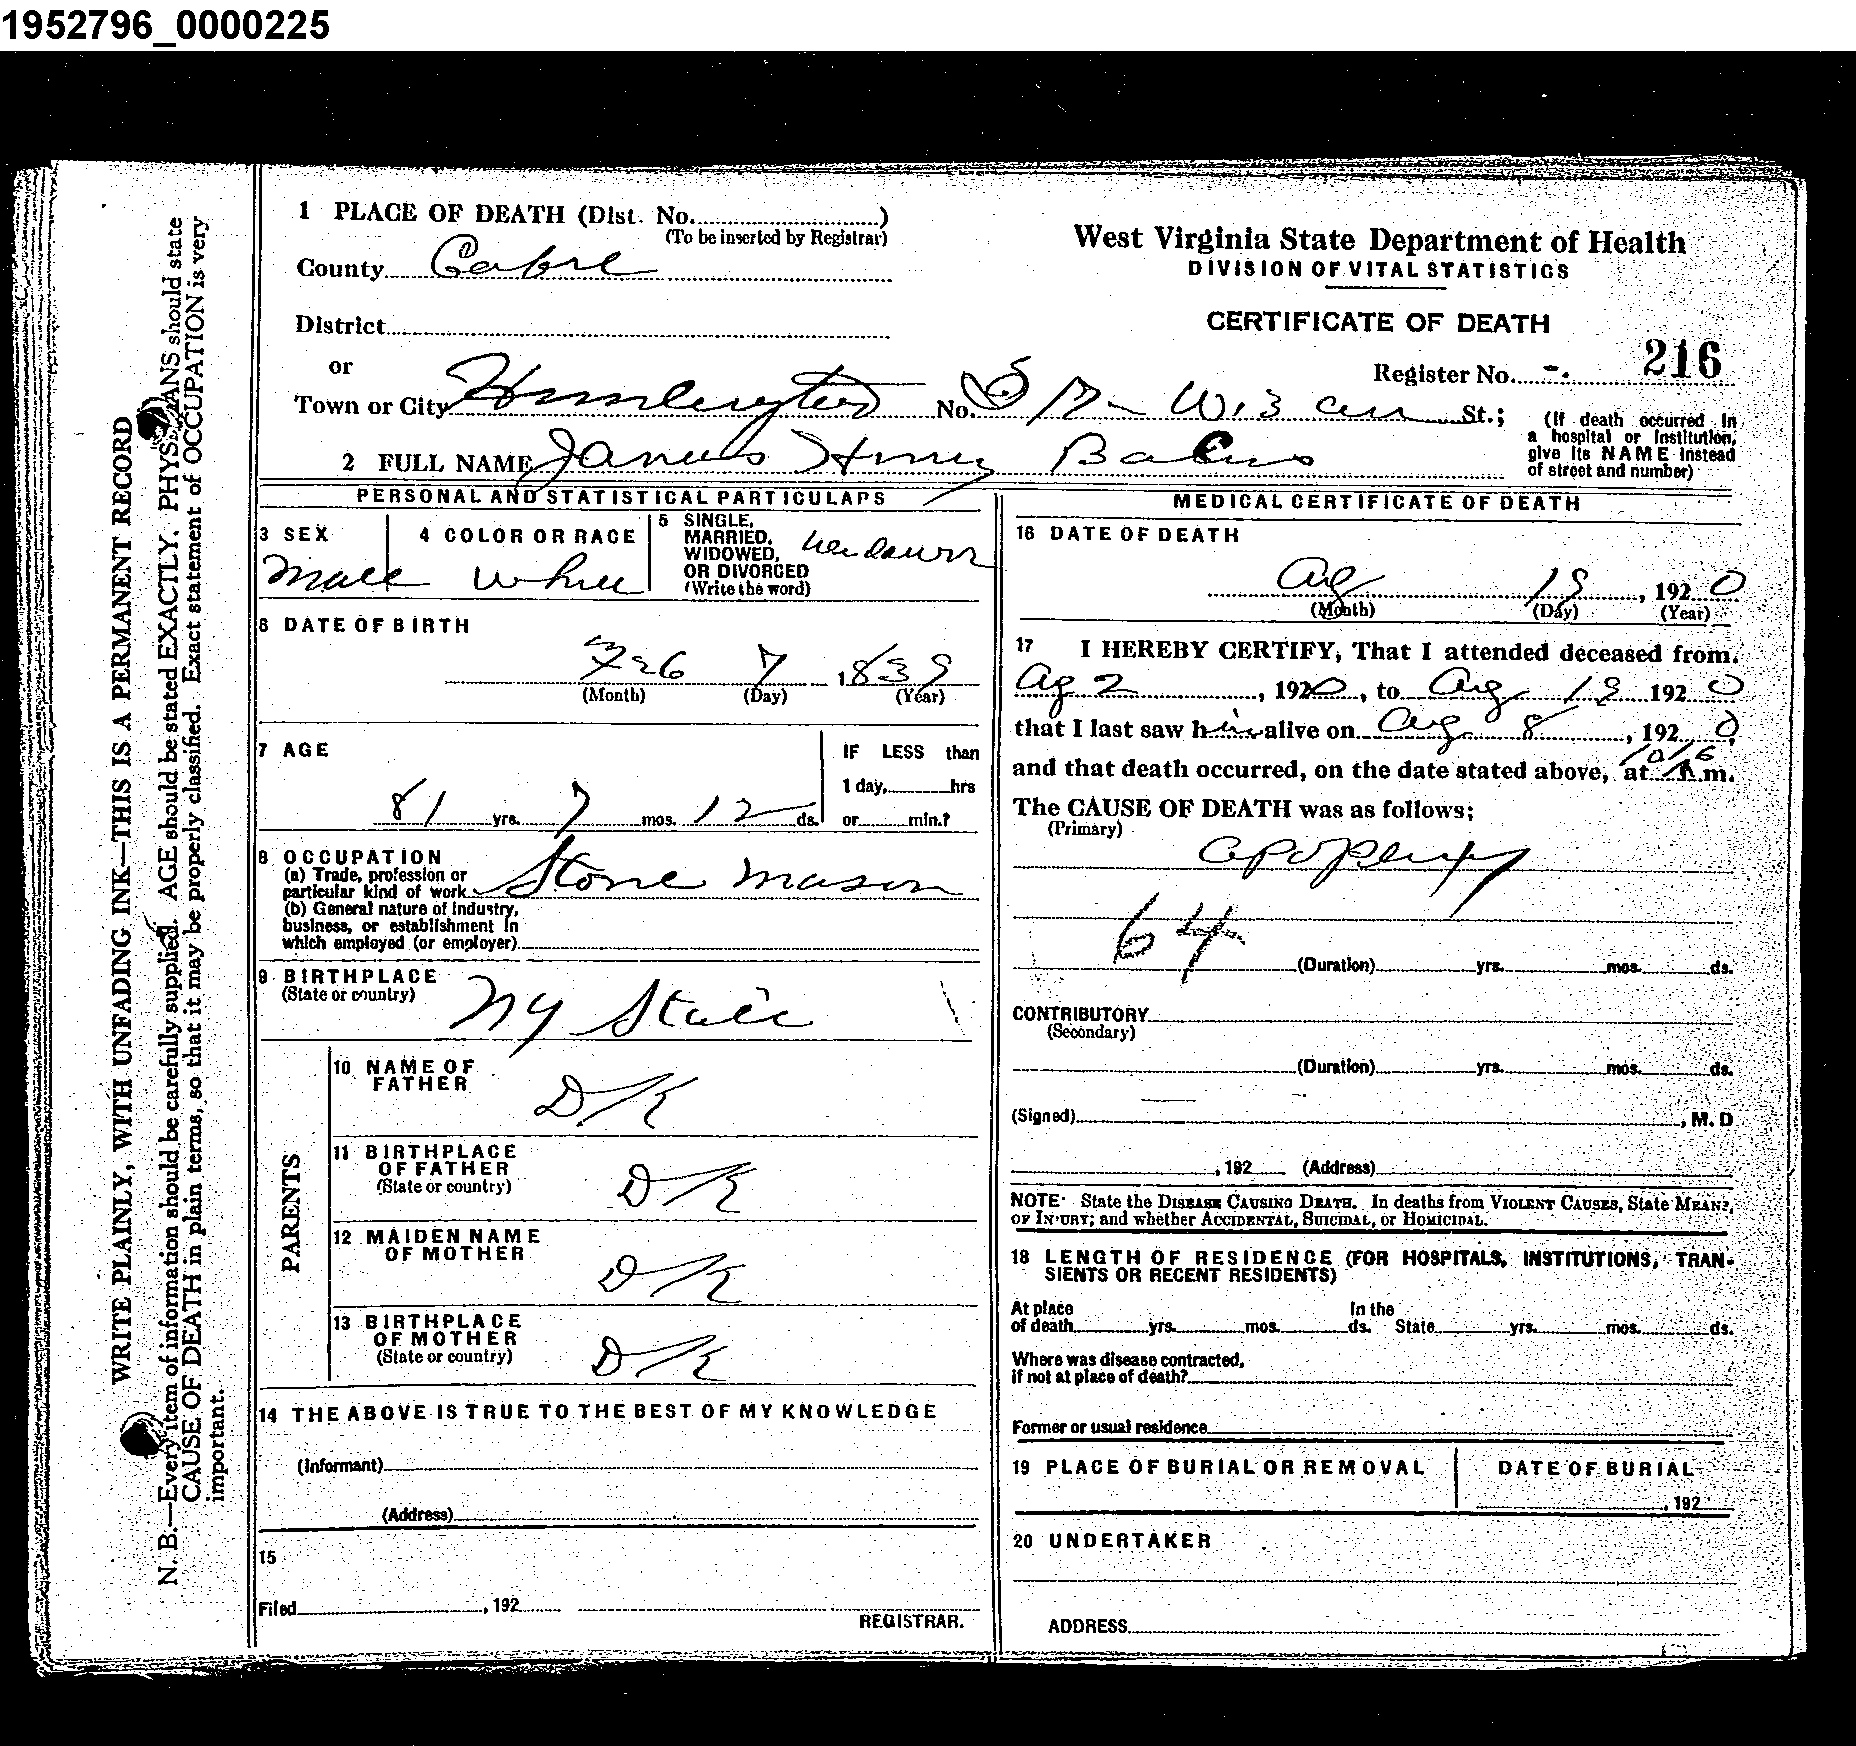 1952796_0000225
1 PLACE OF DEATH (Dist. No.)
(To be inserted by Registrar)
County
District
or
Town or City Huntington No. St.;
(If death occurred in a hospital or institution, give its NAME instead of street and number)
2 FULL NAME James Henry
West Virginia State Department of Health
DIVISION OF VITAL STATISTICS
CERTIFICATE OF DEATH
Register No. 216
PERSONAL AND STATISTICAL PARTICULARS
3 SEX
Male
4 COLOR OR RACE
White
5 SINGLE, MARRIED, WIDOWED, OR DIVORCED
(Write the word)
6 DATE OF BIRTH
7 1839
(Month) (Day) (Year)
7 AGE
81 yrs. 7 mos. 12 ds.
IF LESS than
1 day, hrs
or min.?
8 OCCUPATION
(a) Trade, profession or
particular kind of work Stone mason
(b) General nature of industry,
business, or establishment in
which employed (or employer)
9 BIRTHPLACE
(State or country)
NY State
PARENTS
10 NAME OF FATHER
DK
11 BIRTHPLACE OF FATHER
(State or country)
DK
12 MAIDEN NAME OF MOTHER
DK
13 BIRTHPLACE OF MOTHER
(State or country)
DK
14 THE ABOVE IS TRUE TO THE BEST OF MY KNOWLEDGE
(Informant)
(Address)
15
Filed , 192
REGISTRAR.
MEDICAL CERTIFICATE OF DEATH
16 DATE OF DEATH
Aug 19, 1920
(Month) (Day) (Year)
17 I HEREBY CERTIFY, That I attended deceased from
Ag 2, 1920, to Aug 19 1920
that I last saw him alive on Aug 8, 1920,
and that death occurred, on the date stated above, at m.
The CAUSE OF DEATH was as follows;
(Primary)
apoplexy
64
(Duration) yrs. mos. ds.
CONTRIBUTORY
(Secondary)
(Duration) yrs. mos. ds.
(Signed) , M. D
, 192 (Address)
NOTE State the DISEASE CAUSING DEATH. In deaths from VIOLENT CAUSES, State MEANS
OF INJURY; and whether ACCIDENTAL, SUICIDAL, or HOMICIDAL.
18 LENGTH OF RESIDENCE (FOR HOSPITALS, INSTITUTIONS, TRAN-
SIENTS OR RECENT RESIDENTS)
At place
of death yrs. mos. ds.
In the
State yrs. mos. ds.
Where was disease contracted,
if not at place of death?
Former or usual residence
19 PLACE OF BURIAL OR REMOVAL
DATE OF BURIAL
, 192
20 UNDERTAKER
ADDRESS
WRITE PLAINLY, WITH UNFADING INK—THIS IS A PERMANENT RECORD
N. B.—Every item of information should be carefully supplied. AGE should be stated EXACTLY. PHYSICIANS should state
CAUSE OF DEATH in plain terms, so that it may be properly classified. Exact statement of OCCUPATION is very
important.